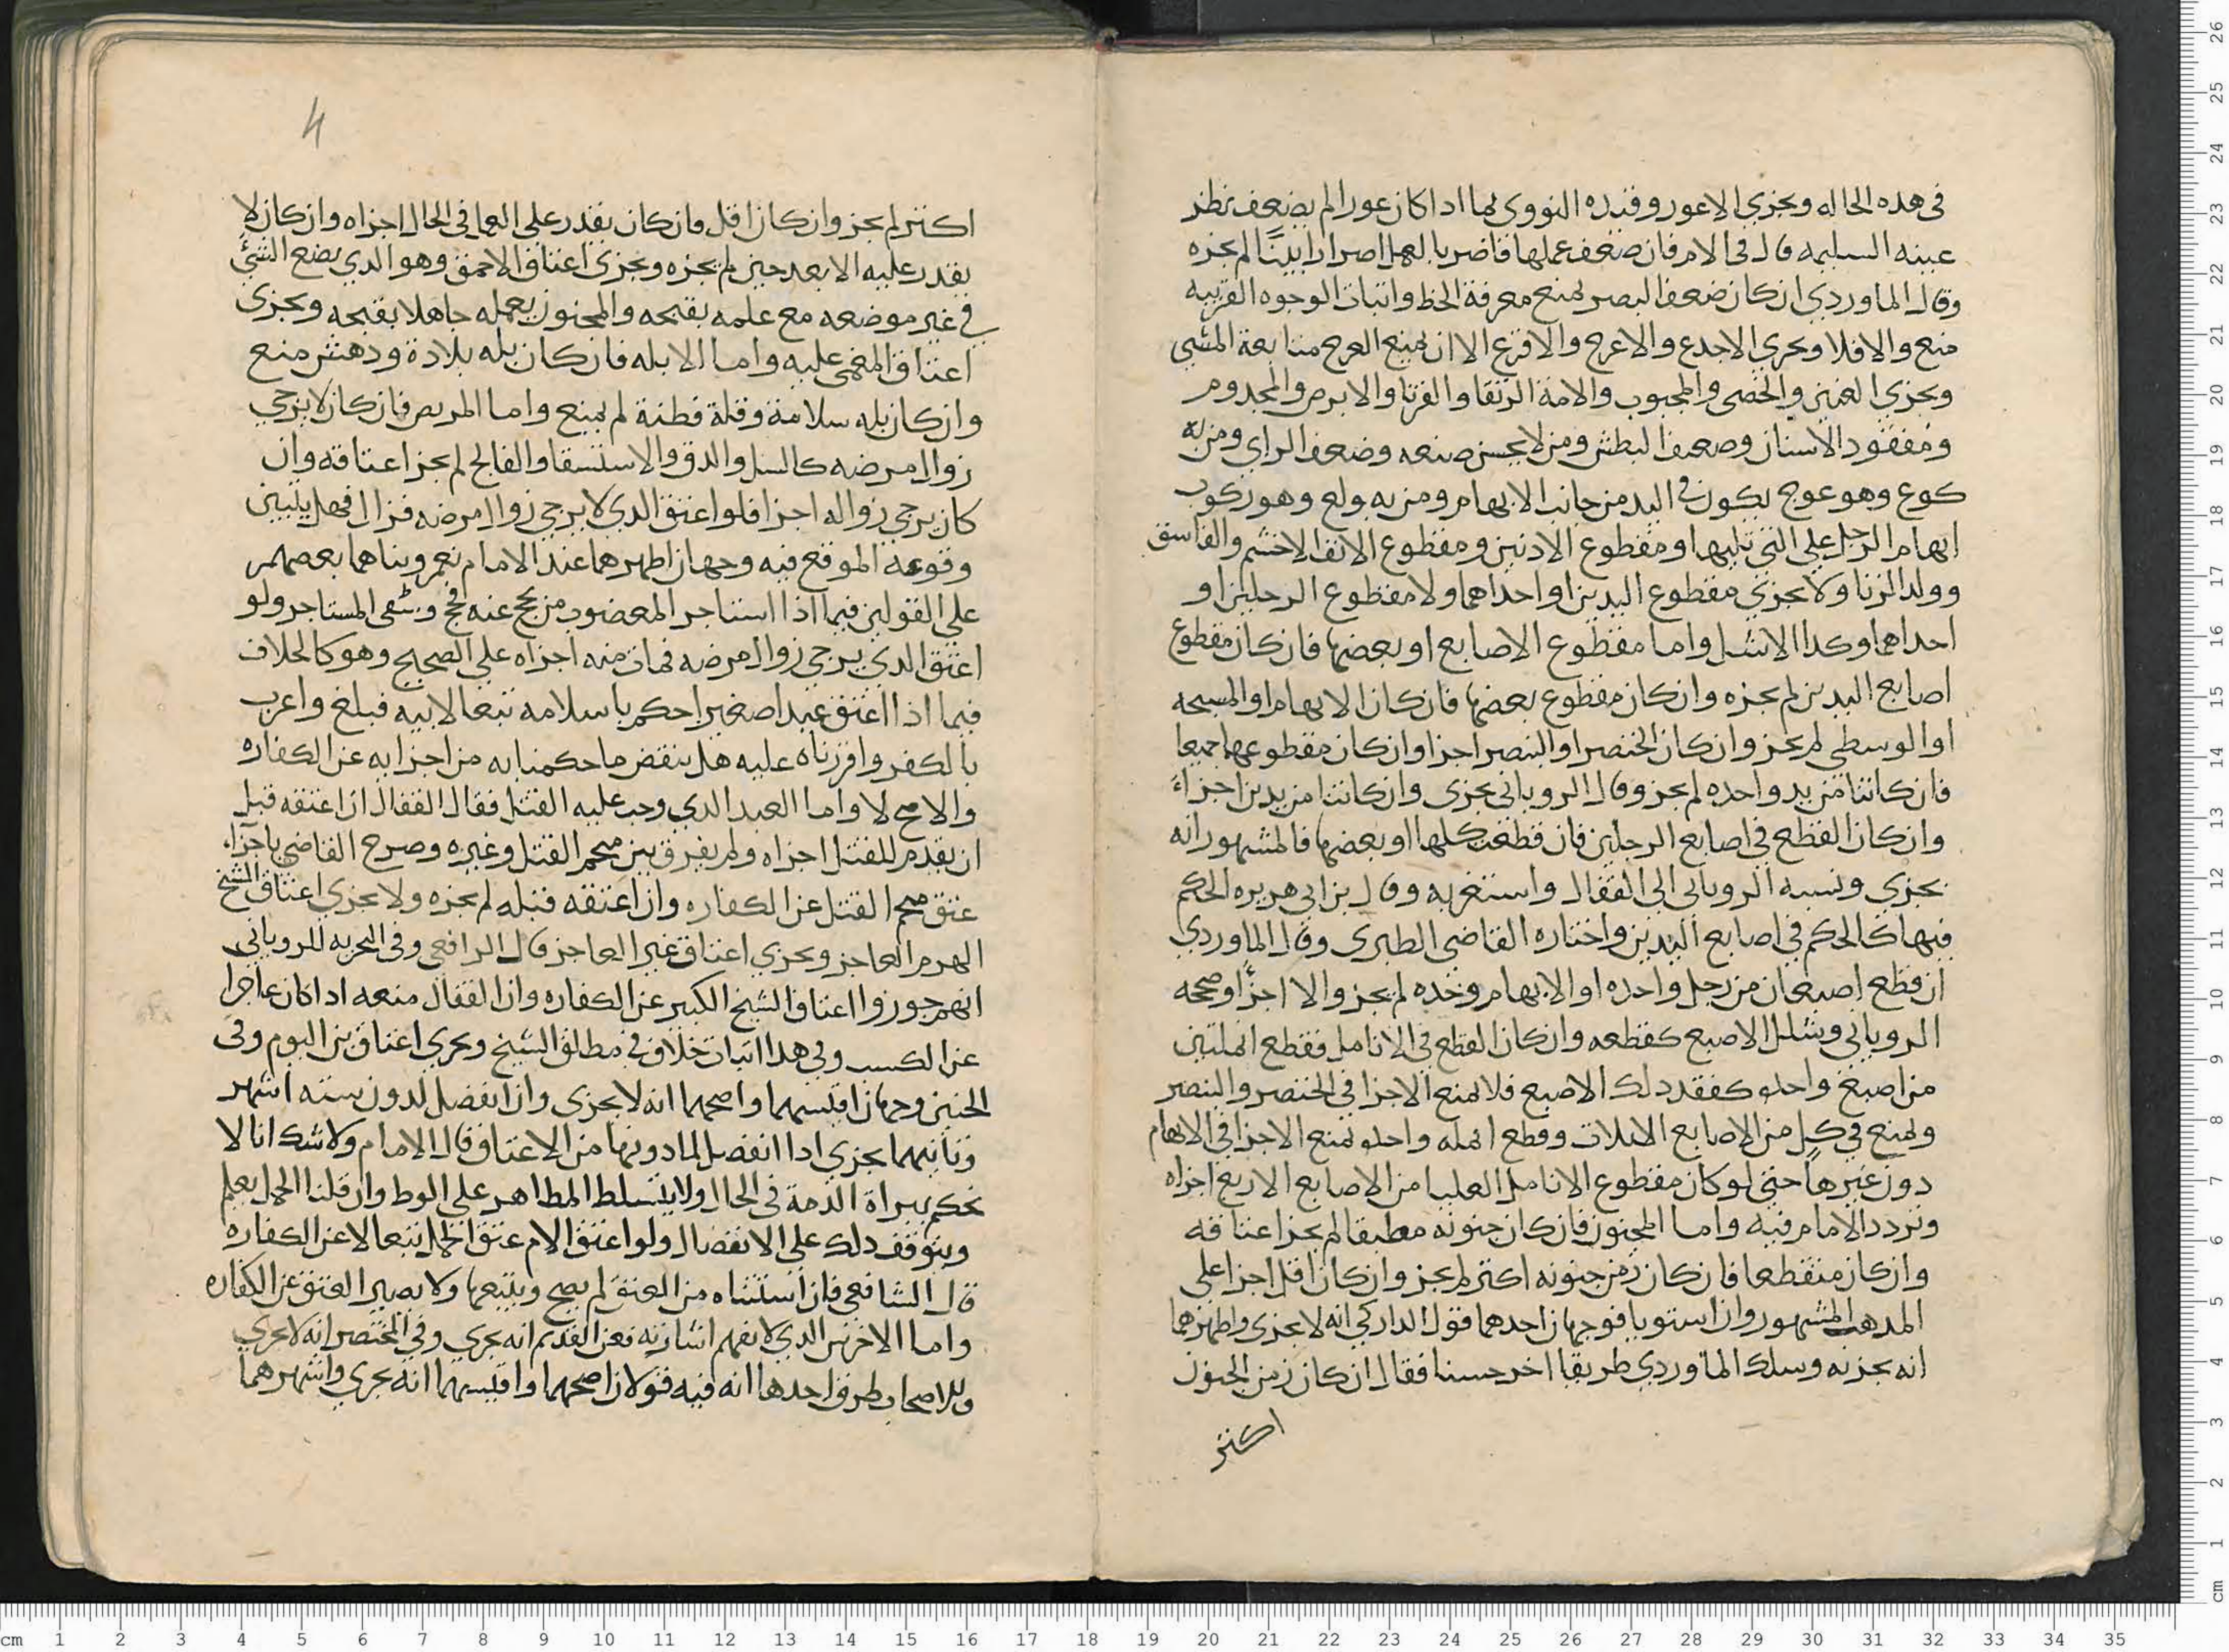 في هذه الحاله ويجزي الاعور وقيده النووي بما اذا كان عورا لم يضعف نظر
عينه السليمه قال في الام فان ضعف عملها فاضر بالعمل اضرارا بينا لم يجزه
وقال الماوردي ان كان ضعف البصر يمنع معرفة الخط واثبات الوجوه القريبه
منع والا فلا ويجزي الاجدع والاعرج والاقرع الا ان يمنع العرج متابعة المشي
ويجزي العنين والخصي والمجبوب والامة الرتقا والقرنا والابرص والمجدوم
ومفقود الاسنان وضعيف البطش ومن لا يحسن صنعه وضعيف الراي ومن به
كوع وهو عوج يكون في اليد من جانب الابهام ومن به ولع وهو ركوب
ابهام الرجل على التي تليها ومقطوع الاذنين ومقطوع الانف الاخشم والفاسق
وولد الزنا ولا يجزي مقطوع اليدين او احداهما ولا مقطوع الرجلين او
احداهما وكذا الاشل واما مقطوع الاصابع او بعضها فان كان مقطوع
اصابع اليدين لم يجزه وان كان مقطوع بعضها فان كان الابهام او المسبحه
او الوسطى لم يجز وان كان الخنصر او البنصر اجزا وان كان مقطوعهما جميعا
فان كانتا من يد واحده لم يجز وقال الروياني يجزى وان كانتا من يدين اجزاء
وان كان القطع في اصابع الرجلين فان قطعت كلها او بعضها فالمشهور انه
يجزي ونسبه الروياني الى القفال واستغربه وقال بن ابي هريره الحكم
فيها كالحكم في اصابع اليدين واختاره القاضي الطبري وقال الماوردي
ان قطع اصبعان من رجل واحده او الابهام وحده لم يجز والا اجزأ وصححه
الروياني وشلل الاصبع كقطعه وان كان القطع في الانامل فقطع انملتين
من اصبع واحده كفقد ذلك الاصبع فلا يمنع الاجزا في الخنصر والبنصر
ويمنع في كل من الاصابع الثلاث وقطع انمله واحده يمنع الاجزا في الابهام
دون غيرها حتى لو كان مقطوع الانامل العليا من الاصابع الاربع اجزاه
وتردد الامام فيه واما المجنون فان كان جنونه مطبقا لم يجز اعتاقه
وان كان منقطعا فان كان زمن جنونه اكثر لم يجز وان كان اقل اجزا على
المذهب المشهور وان استويا فوجهان احدهما قول الداركي انه لا يجزى واظهرهما
انه يجزيه وسلك الماوردي طريقا اخر حسنا فقال ان كان زمن الجنون
اكثر
4
اكثر لم يجز وان كان اقل فان كان يقدر على العمل في الحال اجزاه وان كان لا
يقدر عليه الا بعد حين لم يجزه ويجزى اعتاق الاحمق وهو الذي يضع الشئ
في غير موضعه مع علمه بقبحه والمجنون يعمله جاهلا بقبحه ويجزى
اعتاق المغمى عليه واما الابله فان كان بله بلادة ودهش منع
وان كان بله سلامة وقلة فطنة لم يمنع واما المريض فان كان لا يرجى
زوال مرضه كالسل والدق والاستسقا والفالج لم يجز اعتاقه وان
كان يرجى زواله اجزا فلو اعتق الذي لا يرجى زوال مرضه فزال فهل يتبين
وقوعه الموقع فيه وجهان اظهرهما عند الامام نعم وبناهما بعضهم
على القولين فيما اذا استاجر المعضوب من يحج عنه فحج وشفي المستاجر ولو
اعتق الذي يرجى زوال مرضه فمات منه اجزاه على الصحيح وهو كالخلاف
فيما اذا اعتق عبدا صغيرا حكم باسلامه تبعا لابيه فبلغ واعرب
بالكفر واقررناه عليه هل ينقض ما حكمنا به من اجزايه عن الكفاره
والاصح لا واما العبد الذي وجب عليه القتل فقال القفال ان اعتقه قبل
ان يقدم للقتل اجزاه ولم يفرق بين متحتم القتل وغيره وصرح القاضي باجزاء
عتق متحتم القتل عن الكفاره وان اعتقه قبله لم يجزه ولا يجزي اعتاق الشيخ
الهرم العاجز ويجزي اعتاق غير العاجز قال الرافعي وفي التجربه للروياني
انهم جوزوا اعتاق الشيخ الكبير عن الكفاره وان القفال منعه اذا كان عاجزا
عن الكسب وفي هذا اثبات خلاف في مطلق الشيخ ويجزي اعتاق بن اليوم وفي
الجنين وجهان اقيسهما واصحهما انه لا يجزى وان انفصل لدون سته اشهر
وثانيهما يجزي اذا انفصل لما دونها من الاعتاق قال الامام ولا شك انا لا
نحكم ببراة الذمة في الحال ولا يتسلط المظاهر على الوط وان قلنا الحمل يعلم
ويتوقف ذلك على الانفصال ولو اعتق الام عتق الحمل تبعا لا عن الكفاره
قال الشافعي فان استثناه من العتق لم يصح ويتبعها ولا يصير العتق عن الكفاره
واما الاخرس الذي لا يفهم اشارته فعن القديم انه يجزي وفي المختصر انه لا يجزي
وللاصحاب طرق احدها انه فيه قولان اصحهما واقيسهما انه يجزي واشهرهما